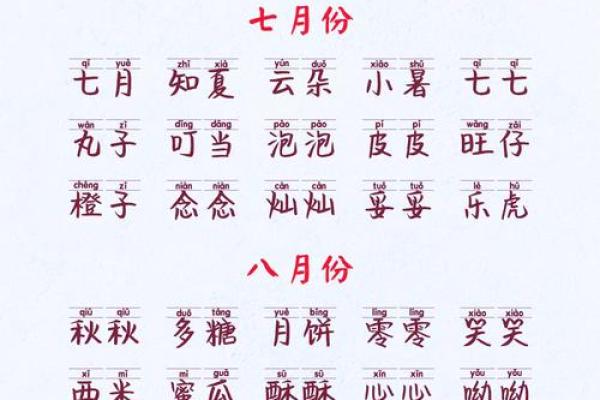 七月份
qī yuè zhī xià yún duǒ xiǎo shǔ qī qī
七月 知夏 云朵 小暑 七七
wán zǐ dīng dāng pào pào pí pí wàng zǎi
丸子 叮当 泡泡 皮皮 旺仔
chéng zǐ niàn niàn càn càn tuǒ tuǒ lè hǔ
橙子 念念 灿灿 妥妥 乐虎
八月份
qiū qiū duō táng yuè bǐng líng líng xiào xiào
秋秋 多糖 月饼 零零 笑笑
xī mǐ mì guā sū sū xīn xīn yōu yōu
西米 蜜瓜 酥酥 心心 呦呦